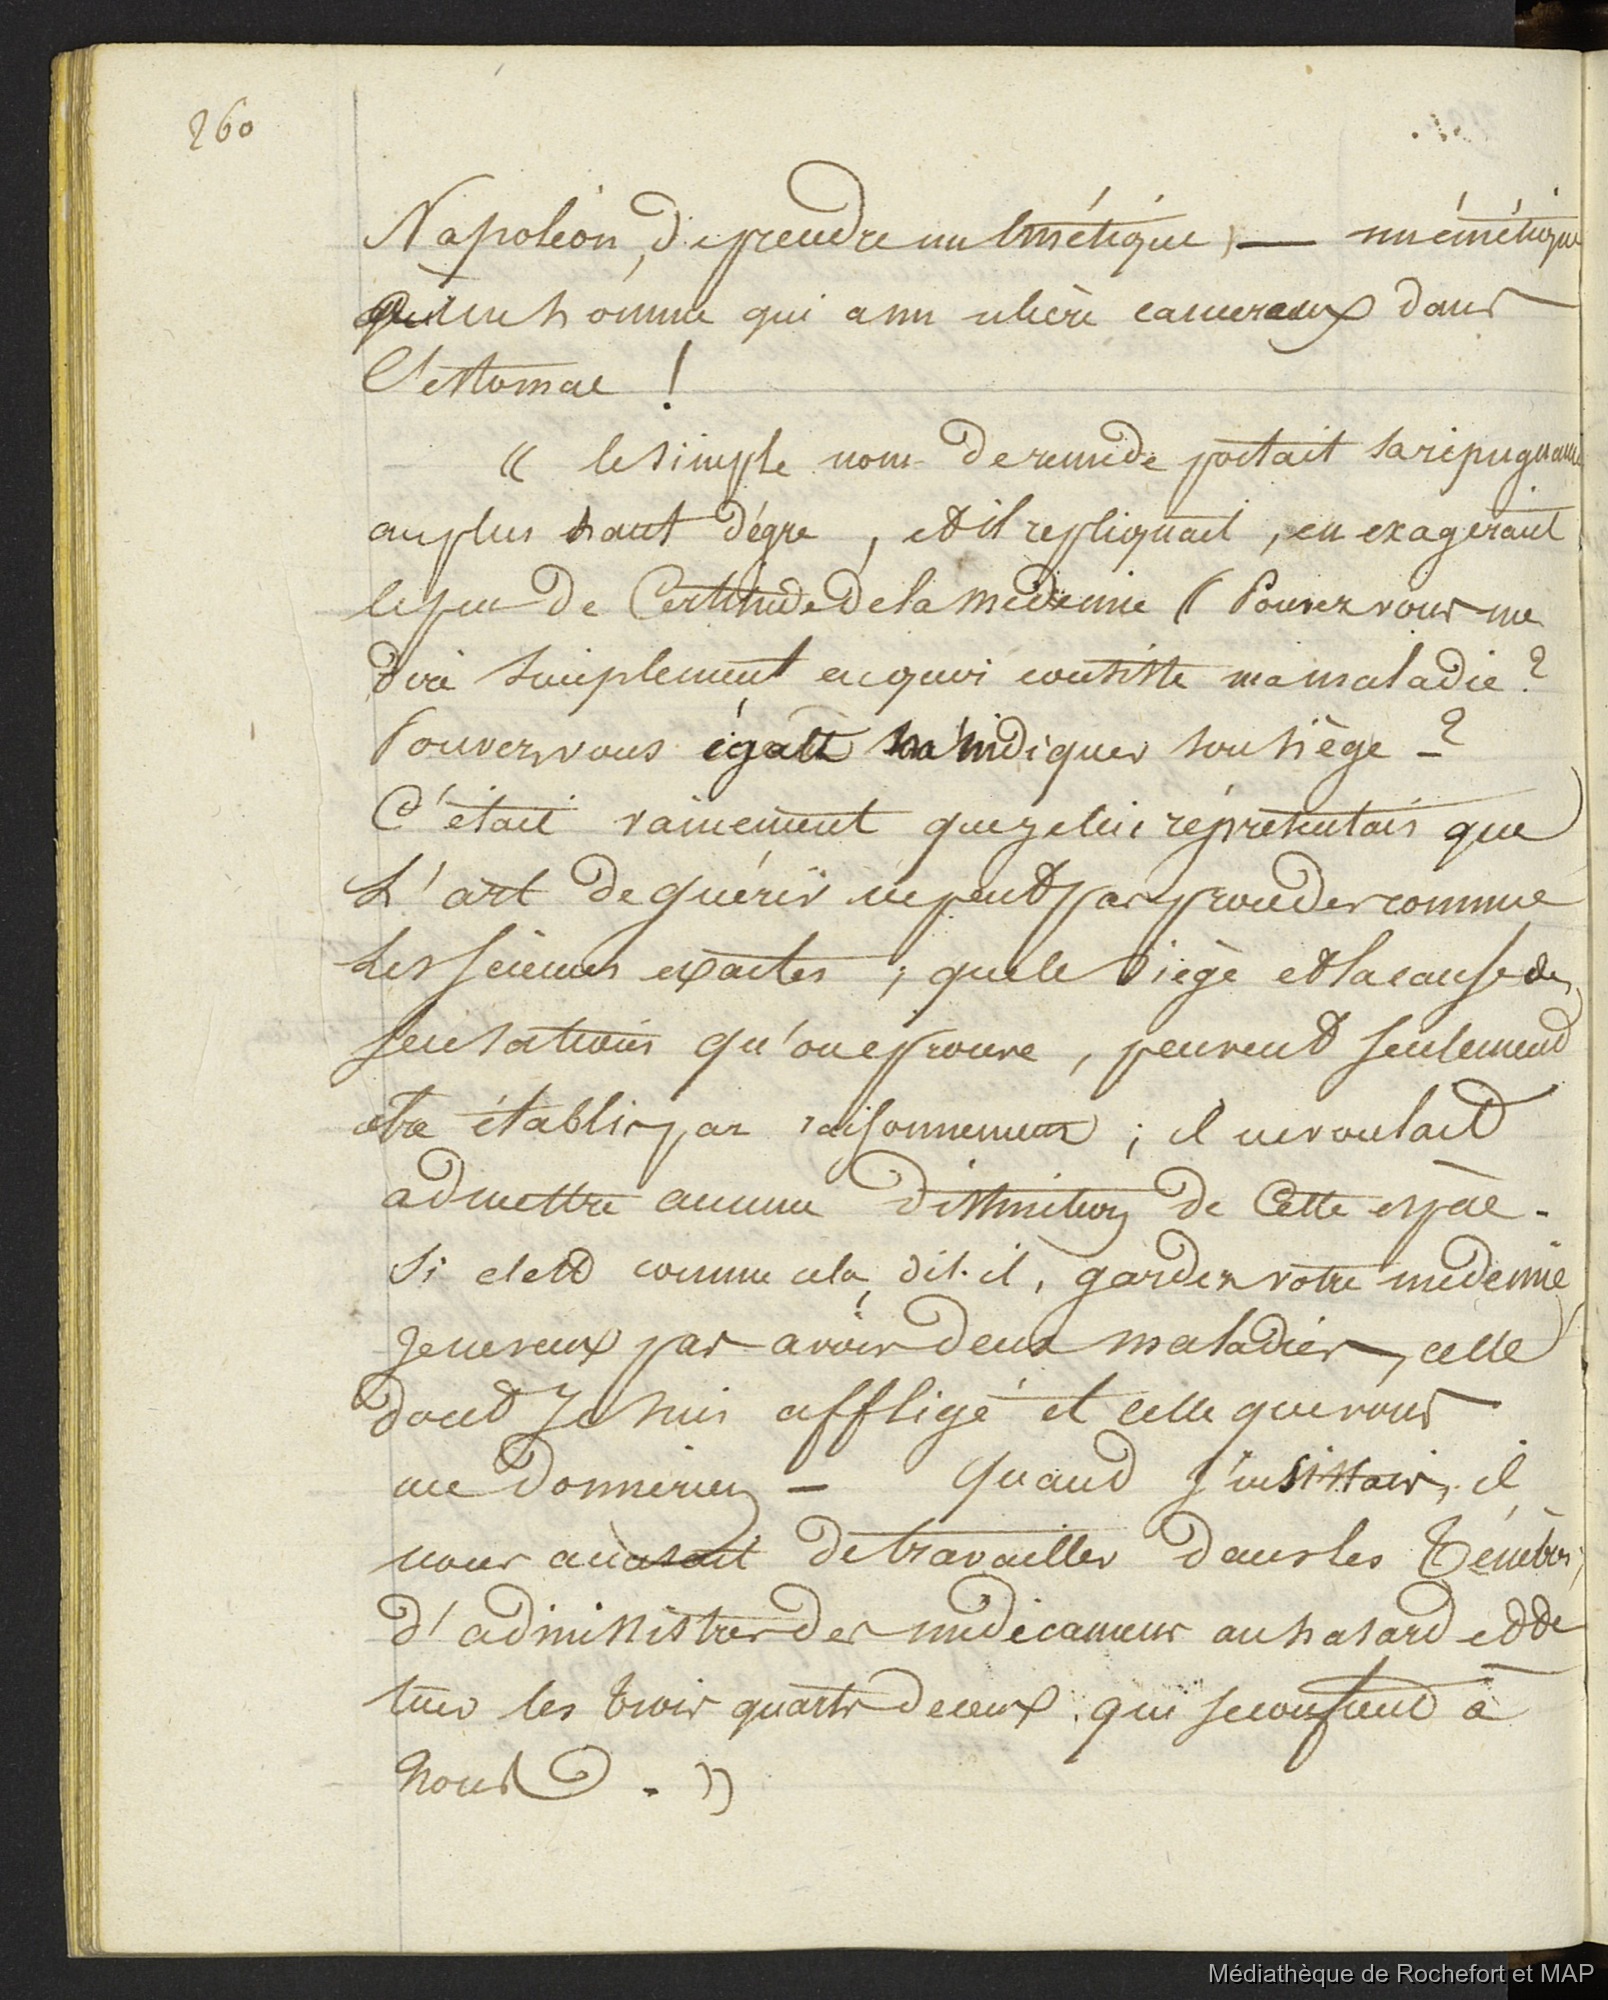 260
Napoléon, de prendre un émétique, — un émétique
à un homme qui a un ulcère cancereux dans
l'estomac !
« le simple nom de remède portait sa répugnance
au plus haut dégre, et il repliquait, en exagerant
le peu de Certitude de la médecine ( Pouvez vous me
dire simplement en quoi consiste ma maladie ?
Pouvez vous égalt m'indiquer son siège - ?
C'était vainement que je lui réprésentais que
L'art de guérir ne peut pas procéder comme
Les sciences exactes ; que le siège et la cause des
sensations qu'on eprouve, peuvent seulement
etre établis par raisonnement ; il ne voulait
admettre aucune distinction de Cette espèce -
Si c'est comme cela, dit-il, gardez votre médecine
Je ne veux pas avoir deux maladies, celle
dont Je suis affligé et celle que vous
me donneriez — Quand j'insistais, il
nous accusait de travailler dans les Ténèbres,
d'administrer des médicamens au hasard et de
tuer les trois quarts de ceux qui se confient à
nous . »
Médiathèque de Rochefort et MAP